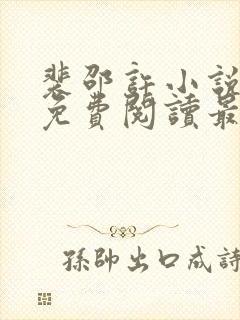 裴邵許小說
免費閱讀最
孫帥出口成詩